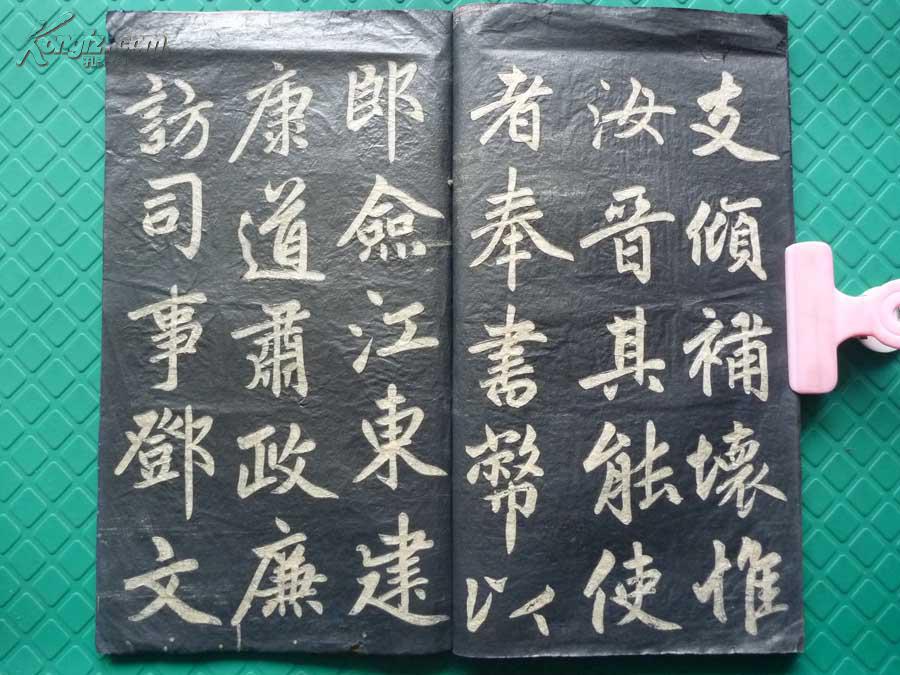 支傾補壞惟
汝晉其能使
者奉書幣以
郎僉江東建
康道肅政廉
訪司事鄧文
Kongfz.com